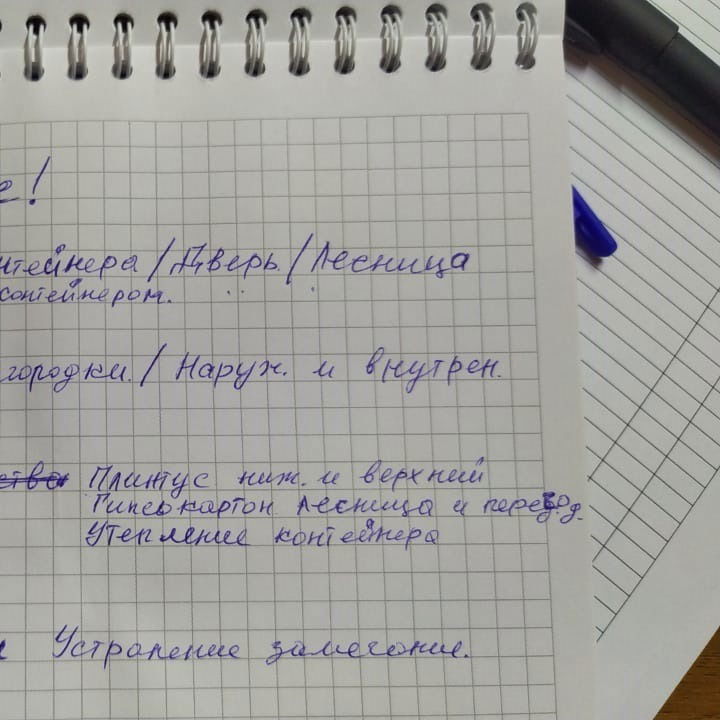 е!
нтейнера / Дверь. / Лесница
контейнером.
городки. / Наруж. и внутрен.
ство Плинтус ниж. и верхний
Гипсокартон Лесница и перегод.
Утепление контейнера
Устранение замечание.